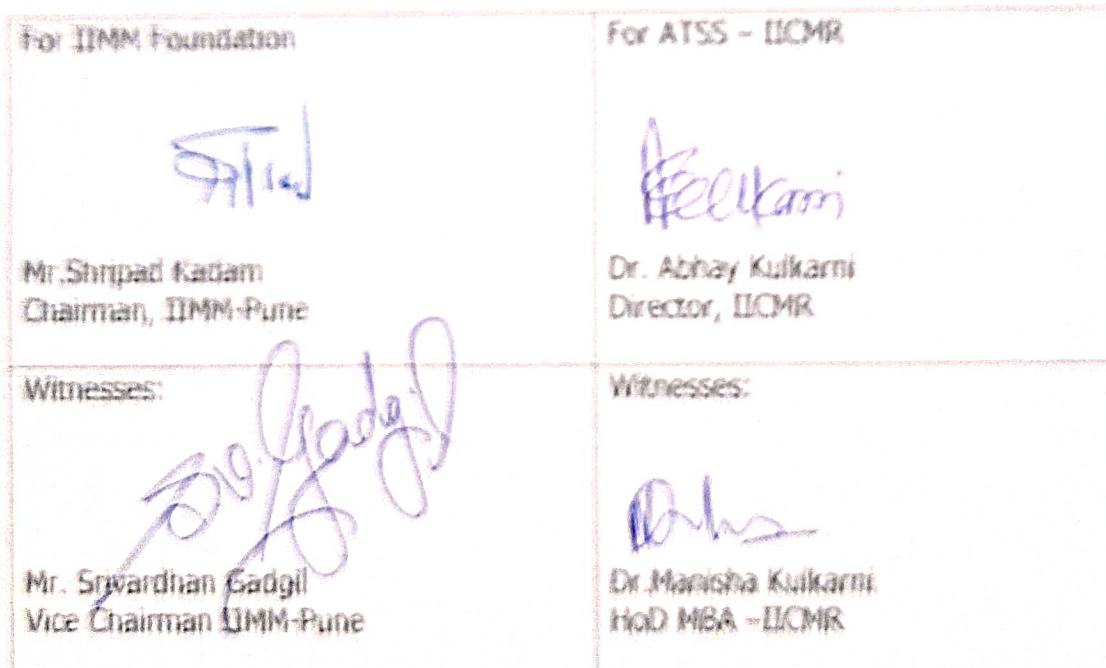 For IIMM Foundation
Mr.Shripad Kadam
Chairman, IIMM-Pune
For ATSS - IICMR
Dr. Abhay Kulkarni
Director, IICMR
Witnesses:
S.V.Gadgil
Mr. Srivardhan Gadgil
Vice Chairman IIMM-Pune
Witnesses:
Dr.Manisha Kulkarni
HoD MBA -IICMR